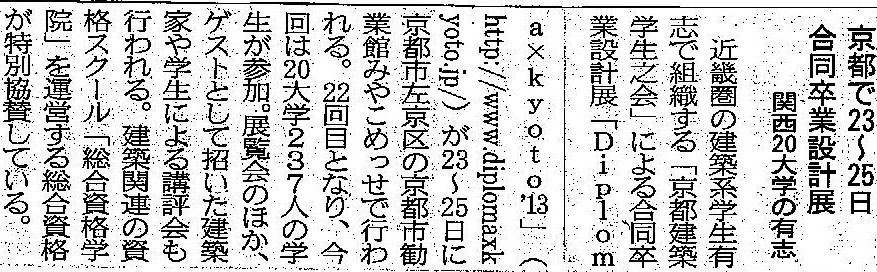 京都で23〜25日
合同卒業設計展
関西20大学の有志
近畿圏の建築系学生有
志で組織する「京都建築
学生之会」による合同卒
業設計展「Diplom
a×kyoto'13」(
http://www.diplomaxk
yoto.jp/)が23〜25日に
京都市左京区の京都市勧
業館みやこめっせで行わ
れる。22回目となり、今
回は20大学237人の学
生が参加。展覧会のほか、
ゲストとして招いた建築
家や学生による講評会も
行われる。建築関連の資
格スクール「総合資格学
院」を運営する総合資格
が特別協賛している。